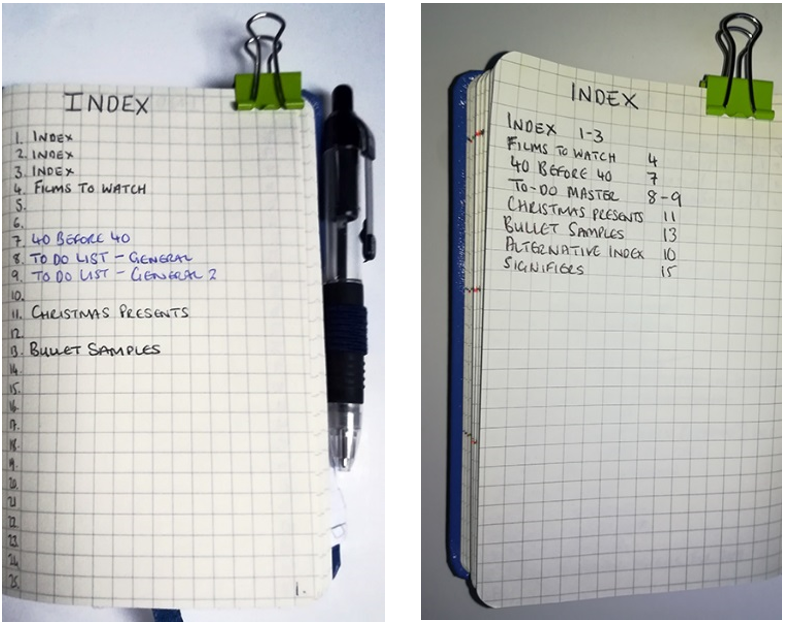 INDEX
1. INDEX
2. INDEX
3. INDEX
4. FILMS TO WATCH
5.
6.
7. 40 BEFORE 40
8. TO DO LIST - GENERAL
9. TO DO LIST - GENERAL 2
10.
11. CHRISTMAS PRESENTS
12.
13. BULLET SAMPLES
14.
15.
16.
17.
18.
19.
20.
21.
22.
23.
24.
25.
1.
INDEX
INDEX 1-3
FILMS TO WATCH 4
40 BEFORE 40 7
TO-DO MASTER 8-9
CHRISTMAS PRESENTS 11
BULLET SAMPLES 13
ALTERNATIVE INDEX 10
SIGNIFIERS 15